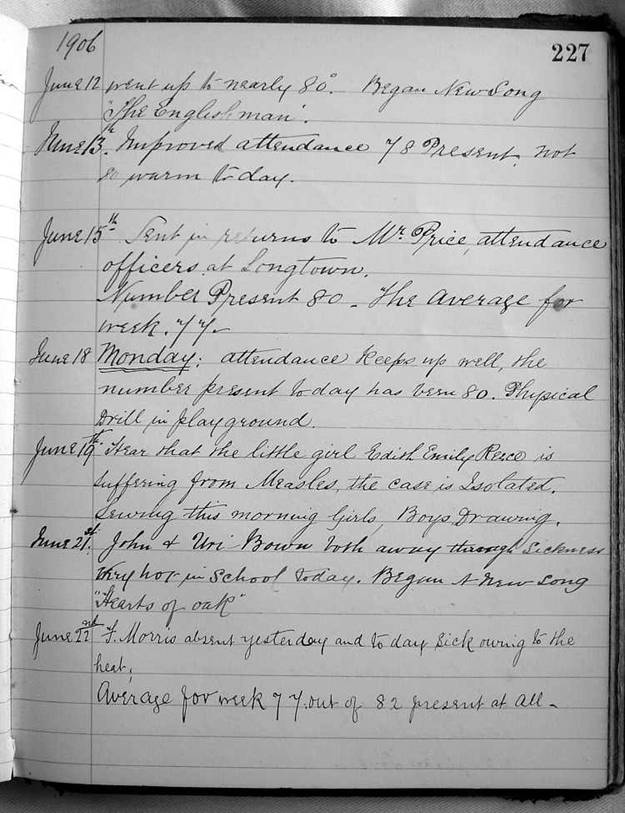 1906
227
June 12 went up to nearly 80°. Began New Song
'The Englishman'.
June 13th. Improved attendance 78 Present. not
so warm to day.
June 15th Sent in returns to Mr. Price, attendance
officers at Longtown.
Number Present 80 - The average for
week. 77-
June 18 Monday: attendance keeps up well, the
number present to day has been 80. Physical
Drill in playground.
June 19th. Hear that the little girl Edith Emily is
suffering from Measles, the case is Isolated.
Sewing this morning Girls, Boys Drawing.
June 21st. John & Uri Bown both away through Sickness
Very hot in School today. Began A New Song
"Hearts of oak"
June 22nd F. Morris absent yesterday and to day sick owing to the
heat.
Average for week 77. out of 82 present at all-